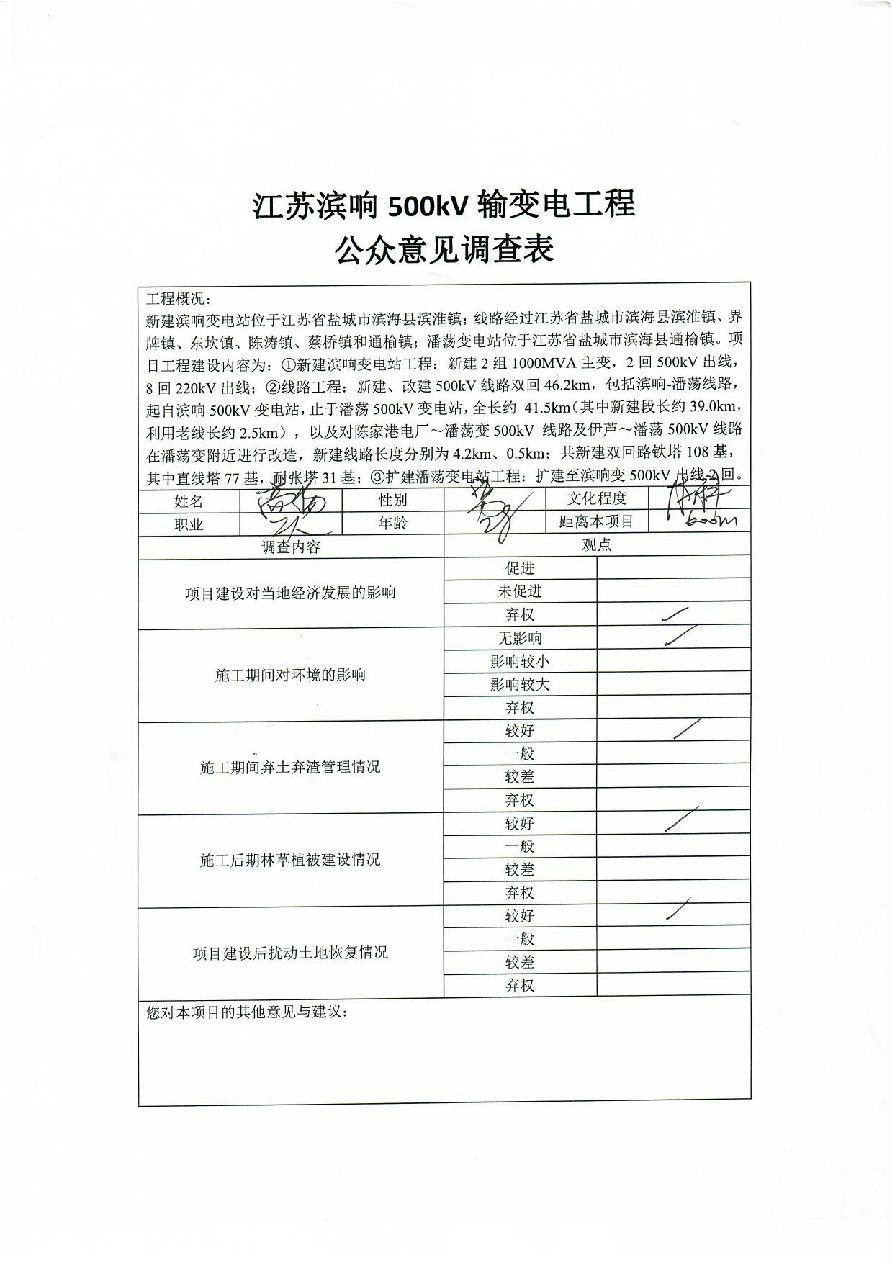 江苏滨响 500kV 输变电工程
公众意见调查表
工程概况：
新建滨响变电站位于江苏省盐城市滨海县滨淮镇；线路经过江苏省盐城市滨海县滨淮镇、界
牌镇、东坎镇、陈涛镇、蔡桥镇和通榆镇；潘荡变电站位于江苏省盐城市滨海县通榆镇。项
目工程建设内容为：①新建滨响变电站工程：新建 2 组 1000MVA 主变，2 回 500kV 出线，
8 回 220kV 出线；②线路工程：新建、改建 500kV 线路双回 46.2km，包括滨响-潘荡线路，
起自滨响 500kV 变电站，止于潘荡 500kV 变电站，全长约 41.5km（其中新建段长约 39.0km，
利用老线长约 2.5km），以及对陈家港电厂～潘荡变 500kV 线路及伊芦～潘荡 500kV 线路
在潘荡变附近进行改造，新建线路长度分别为 4.2km、0.5km；共新建双回路铁塔 108 基，
其中直线塔 77 基，耐张塔 31 基；③扩建潘荡变电站工程：扩建至滨响变 500kV 出线 2 回。
姓名 性别 文化程度 本科
职业 年龄 28 距离本项目 600m
调查内容 观点
项目建设对当地经济发展的影响 促进
未促进
弃权 ✓
施工期间对环境的影响 无影响 ✓
影响较小
影响较大
弃权
施工期间弃土弃渣管理情况 较好 ✓
一般
较差
弃权
施工后期林草植被建设情况 较好 ✓
一般
较差
弃权
项目建设后扰动土地恢复情况 较好 ✓
一般
较差
弃权
您对本项目的其他意见与建议：